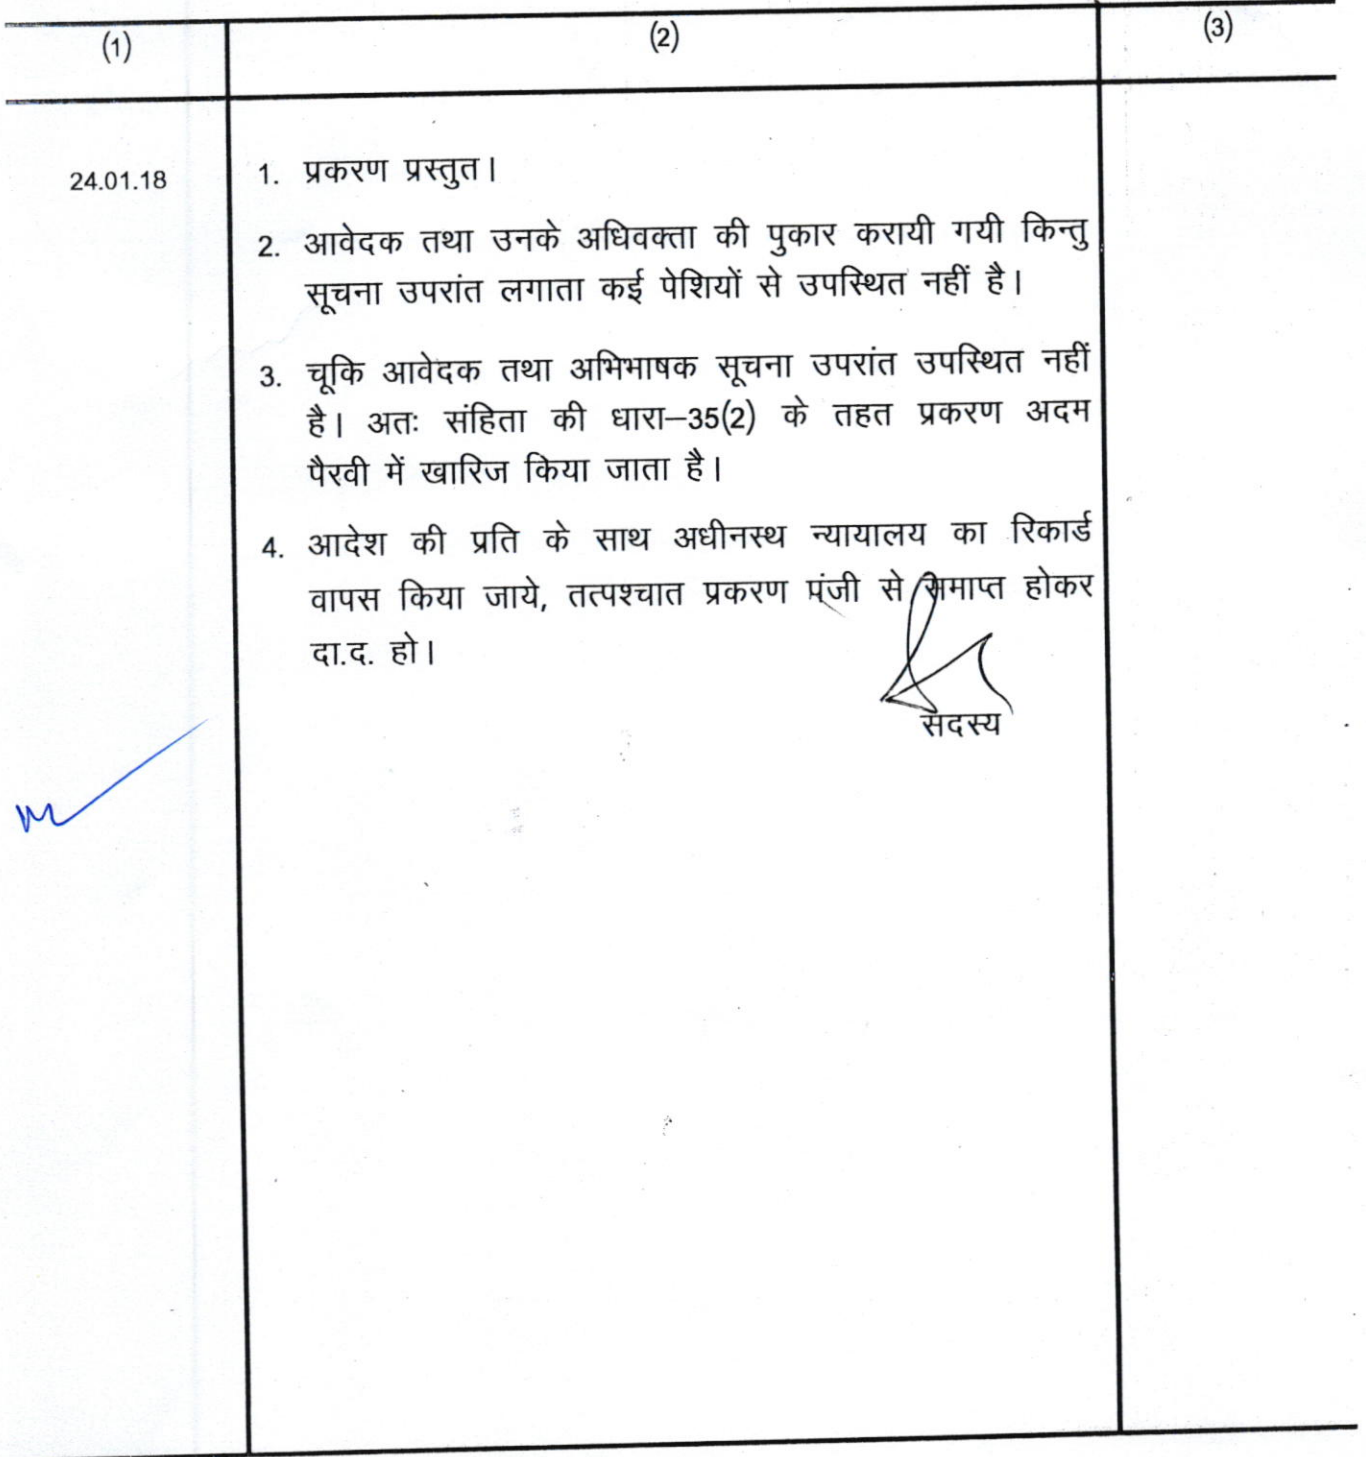 (1) (2) (3)
24.01.18
1. प्रकरण प्रस्तुत।
2. आवेदक तथा उनके अधिवक्ता की पुकार करायी गयी किन्तु
सूचना उपरांत लगाता कई पेशियों से उपस्थित नहीं है।
3. चूकि आवेदक तथा अभिभाषक सूचना उपरांत उपस्थित नहीं
है। अतः संहिता की धारा–35(2) के तहत प्रकरण अदम
पैरवी में खारिज किया जाता है।
4. आदेश की प्रति के साथ अधीनस्थ न्यायालय का रिकार्ड
वापस किया जाये, तत्पश्चात प्रकरण पंजी से समाप्त होकर
दा.द. हो।
सदस्य